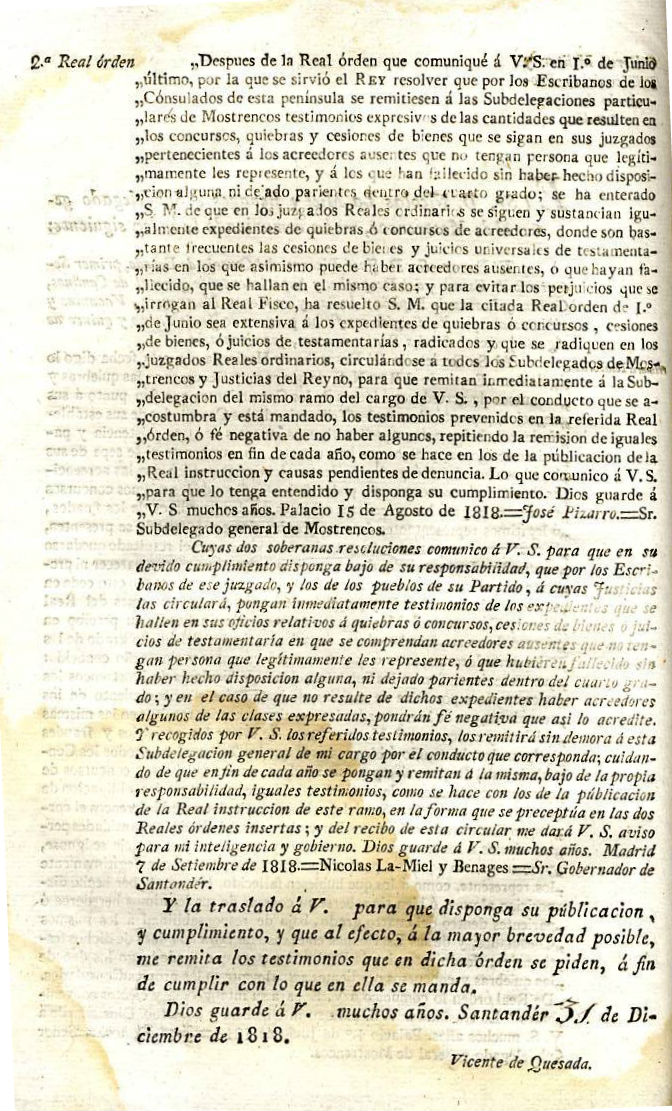 2.ª Real órden „Despues de la Real órden que comuniqué á V. S. en 1.º de Junio
„último, por la que se sirvió el REY resolver que por los Escribanos de los
„Cónsulados de esta península se remitiesen á las Subdelegaciones particu-
„lares de Mostrencos testimonios expresivos de las cantidades que resulten en
„los concursos, quiebras y cesiones de bienes que se sigan en sus juzgados
„pertenecientes á los acreedores ausentes que no tengan persona que legíti-
„mamente les represente, y á los que han fallecido sin haber hecho disposi-
„cion alguna ni dejado parientes dentro del cuarto grado; se ha enterado
„S. M. de que en los juzgados Reales ordinarios se siguen y sustancian igu-
„almente expedientes de quiebras ó concursos de acreedores, donde son bas-
„tante frecuentes las cesiones de bienes y juicios universales de testamenta-
„rias en los que asimismo puede haber acreedores ausentes, ó que hayan fa-
„llecido, que se hallan en el mismo caso; y para evitar los perjuicios que se
„irrogan al Real Fisco, ha resuelto S. M. que la citada Real orden de 1.º
„de Junio sea extensiva á los expedientes de quiebras ó concursos, cesiones
„de bienes, ó juicios de testamentarías, radicados y que se radiquen en los
„juzgados Reales ordinarios, circulándose á todos los Subdelegados de Mos-
„trencos y Justicias del Reyno, para que remitan inmediatamente á la Sub-
„delegacion del mismo ramo del cargo de V. S., por el conducto que se a-
„costumbra y está mandado, los testimonios prevenidos en la referida Real
„órden, ó fé negativa de no haber algunos, repitiendo la remision de iguales
„testimonios en fin de cada año, como se hace en los de la públicacion de la
„Real instruccion y causas pendientes de denuncia. Lo que comunico á V. S.
„para que lo tenga entendido y disponga su cumplimiento. Dios guarde á
„V. S muchos años. Palacio 15 de Agosto de 1818.=José Pizarro.=Sr.
Subdelegado general de Mostrencos.
Cuyas dos soberanas resoluciones comunico á V. S. para que en su
devido cumplimiento disponga bajo de su responsabilidad, que por los Escri-
banos de ese juzgado, y los de los pueblos de su Partido, á cuyas Justicias
las circulará, pongan inmediatamente testimonios de los expedientes que se
hallen en sus oficios relativos á quiebras ó concursos, cesiones de bienes ó jui-
cios de testamentaría en que se comprendan acreedores ausentes que no ten-
gan persona que legítimamente les represente, ó que hubieren fallecido sin
haber hecho disposicion alguna, ni dejado parientes dentro del cuarto gra-
do; y en el caso de que no resulte de dichos expedientes haber acreedores
algunos de las clases expresadas, pondrán fé negativa que asi lo acredite.
Y recogidos por V. S. los referidos testimonios, los remitirá sin demora á esta
Subdelegacion general de mi cargo por el conducto que corresponda; cuidan-
do de que en fin de cada año se pongan y remitan á la misma, bajo de la propia
responsabilidad, iguales testimonios, como se hace con los de la públicacion
de la Real instruccion de este ramo, en la forma que se preceptúa en las dos
Reales órdenes insertas; y del recibo de esta circular me dará V. S. aviso
para mi inteligencia y gobierno. Dios guarde á V. S. muchos años. Madrid
7 de Setiembre de 1818.=Nicolas La-Miel y Benages=Sr. Gobernador de
Santandér.
Y la traslado á V. para que disponga su públicacion,
y cumplimiento, y que al efecto, á la mayor brevedad posible,
me remita los testimonios que en dicha órden se piden, á fin
de cumplir con lo que en ella se manda.
Dios guarde á V. muchos años. Santandér 31 de Di-
ciembre de 1818.
Vicente de Quesada.